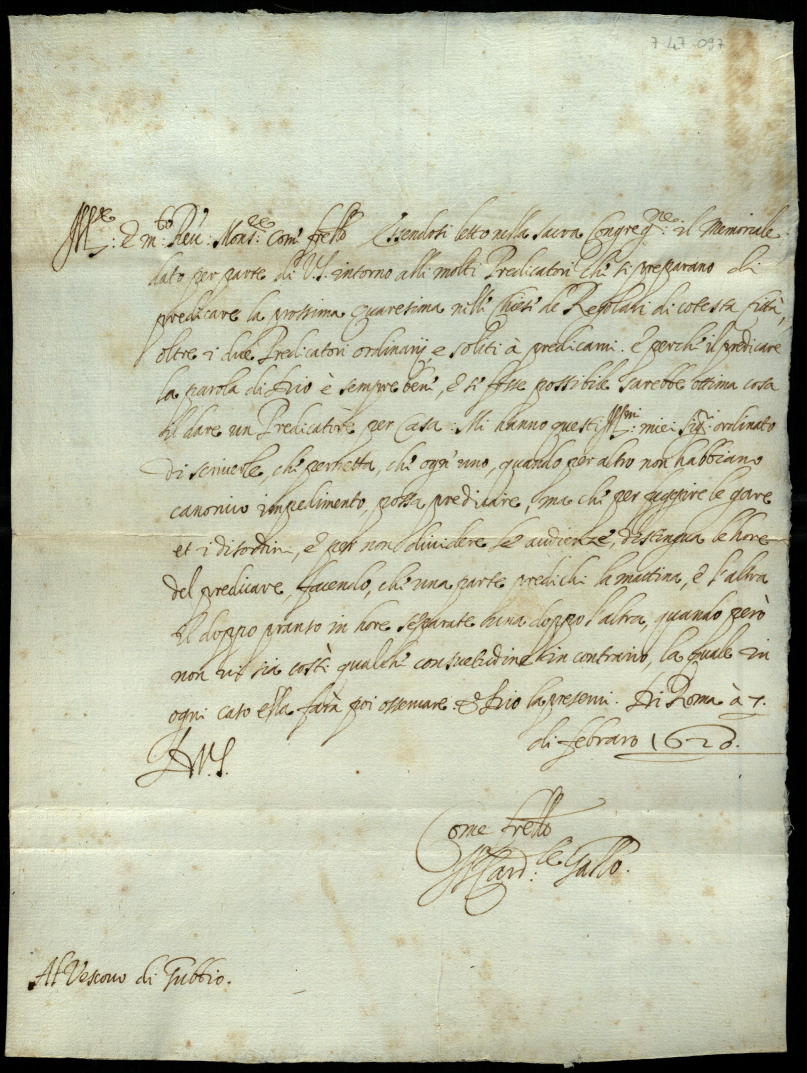 7 47 097
Ill.re: E m.to Reu: Mons.re: com' fr'ello Essendosi letto nella sacra Congreg.ne: il Memoriale
dato per parte di V.S. intorno alli molti Predicatori che si preparano di
predicare la prossima quaresima nelle Chiese de Regolari di cotesta Città,
oltre i due Predicatori ordinarij, e soliti à predicarui. E perche il predicare
la parola di Dio è sempre bene, e si fosse possibile sarebbe ottima cosa
il dare un Predicatore per Casa. Mi hanno questi Ill.mi: miei Sig.ri: ordinato
di scriuerle, che permetta, che ogn'uno, quando per altro non habbiano
canonico impedimento, possa predicare, ma che per fuggire le gare
et i disordini, e per non diuidere le audienze, distingua le hore
del predicare, facendo, che una parte predichi la mattina, e l'altra
il doppo pranso in hore separate l'una doppo l'altra, quando però
non ui sia costì qualche consuetudine in contrario, la quale in
ogni caso ella farà poi osseruare. E Dio la preserui. Di Roma à 7.
di febraro 1620.
D.V.S.
Come fr'ello
Il Card.le: Gallo.
Al Vescouo di Gubbio.